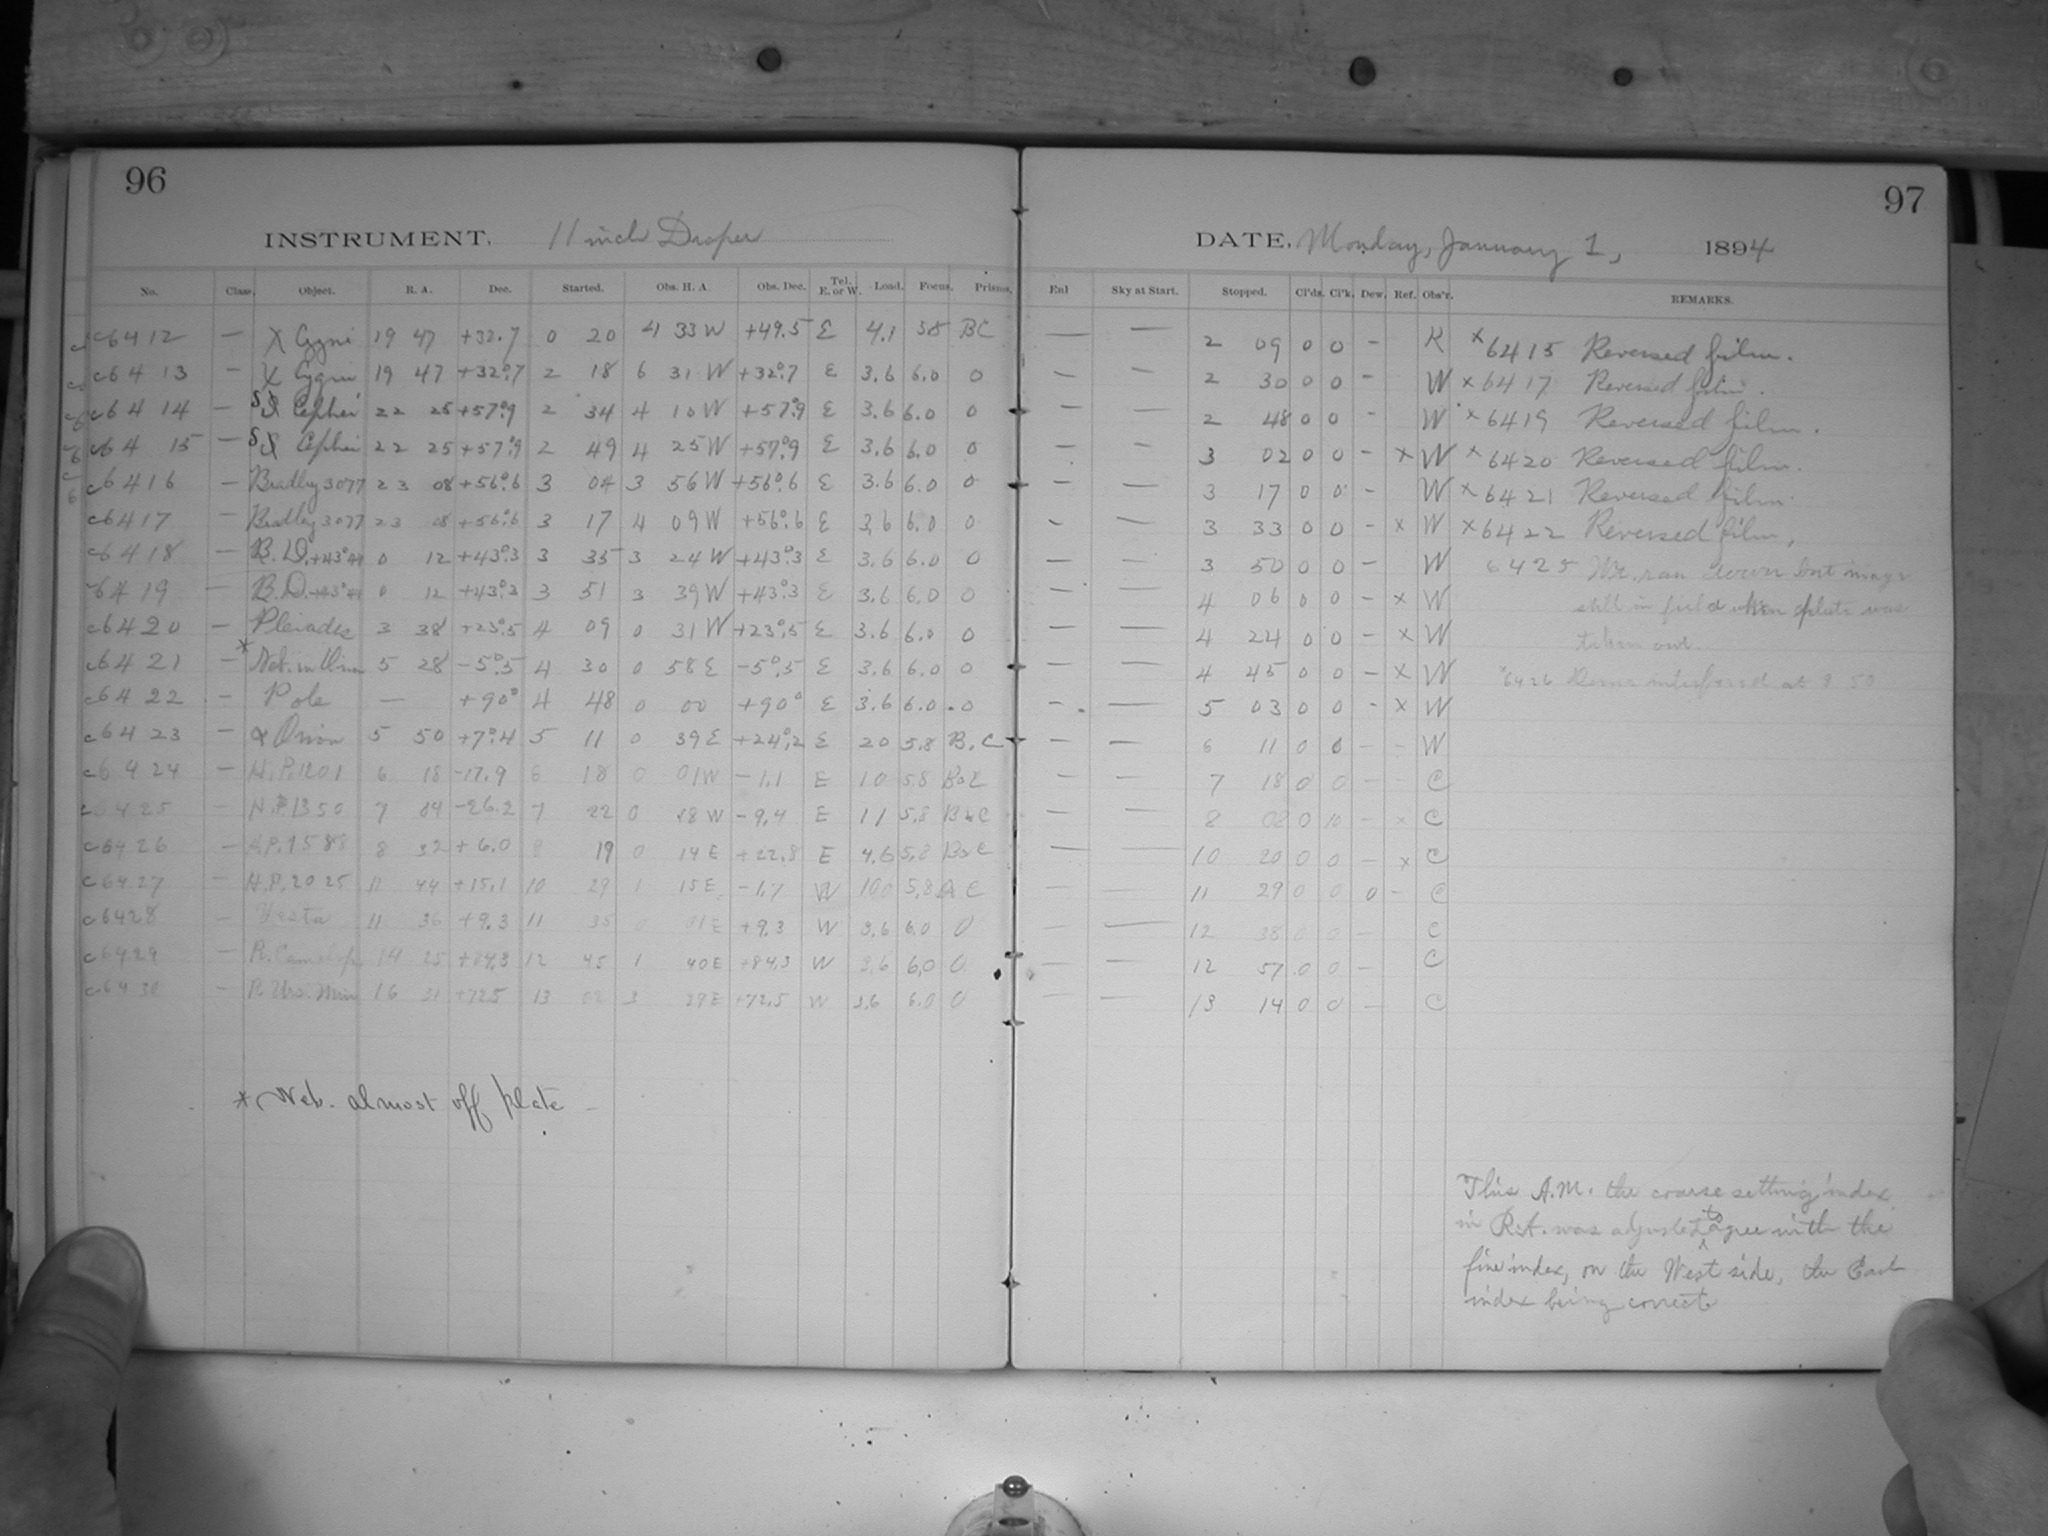 96
INSTRUMENT. 11 inch Draper
No. Class. Object. R. A. Dec. Started. Obs. H. A. Obs. Dec. Tel. E. or W. Load. Focus. Prisms.
c6412 — χ Cygni 19 47 +32.7 0 20 4 33 W +49.5 E 4.1 58 BC
c6413 — χ Cygni 19 47 +32°.7 2 18 6 31 W +32°.7 E 3.6 6.0 0
c6414 — Cephei 22 25 +57°.9 2 34 4 10 W +57°.9 E 3.6 6.0 0
c6415 — Cephei 22 25 +57°.9 2 49 4 25 W +57°.9 E 3.6 6.0 0
c6416 — Bradley 3077 23 08 +56°.6 3 04 3 56 W +56°.6 E 3.6 6.0 0
c6417 — Bradley 3077 23 08 +56°.6 3 17 4 09 W +56°.6 E 3.6 6.0 0
c6418 — B.D. 0 12 +43°.3 3 35 3 24 W +43°.3 E 3.6 6.0 0
6419 — B.D. 0 12 +43°.3 3 51 3 39 W +43°.3 E 3.6 6.0 0
c6420 — Pleiades 3 38 +23°.5 4 09 0 31 W +23°.5 E 3.6 6.0 0
c6421 * — Neb. in Orion 5 28 -5°.5 4 30 0 58 E -5°.5 E 3.6 6.0 0
c6422 — Pole — +90° 4 48 0 00 +90° E 3.6 6.0 0
c6423 — α Orion 5 50 +7°.4 5 11 0 39 E +24°.2 E 20 5.8 B.C
c6424 — H.P. 1201 6 18 -17.9 6 18 0 01 W -1.1 E 10 5.8
c6425 — H.P. 1350 7 04 -26.2 7 22 0 W -9.4 E 11 5.8
c6426 — H.P. 1588 8 32 +6.0 8 19 0 14 E +22.8 E 4.6 5.8
c6427 — H.P. 2025 11 44 +15.1 10 29 1 15 E -1.7 W 5.8
c6428 — Vesta 11 36 +9.3 11 35 0 01 E +9.3 W 3.6 6.0 0
c6429 — R. Camelop. 14 25 +84.3 12 45 1 40 E +84.3 W 3.6 6.0 0
c6430 — R. Urs. Min 16 31 +72.5 13 02 3 29 E +72.5 W 3.6 6.0 0
* Neb. almost off plate —
97
DATE. Monday, January 1, 1894
Enl Sky at Start. Stopped. Cl'ds. Cl'k. Dew. Ref. Obs'r. REMARKS.
— — 2 09 0 0 - K ×6415 Reversed film.
— — 2 30 0 0 - W ×6417 Reversed film.
— — 2 48 0 0 - W ×6419 Reversed film.
— — 3 02 0 0 - × W ×6420 Reversed film.
— — 3 17 0 0 - W ×6421 Reversed film.
- — 3 33 0 0 - × W ×6422 Reversed film,
— — 3 50 0 0 - W 6425 ran down but image
— — 4 06 0 0 - × W still in field when plate was
— — 4 24 0 0 - × W taken out.
— — 4 45 0 0 - × W ×6426 interfered at 8 50
— — 5 03 0 0 - × W
— — 6 11 0 0 - - W
— — 7 18 0 0 - - C
— — 8 02 0 10 - × C
— — 10 20 0 0 - × C
— — 11 29 0 0 0 - C
— — 12 38 0 0 - C
— — 12 57 0 0 - C
— — 13 14 0 0 - C
This A.M. the coarse setting index
in R.A. was adjusted to agree with the
fine index, on the West side, the East
index being correct